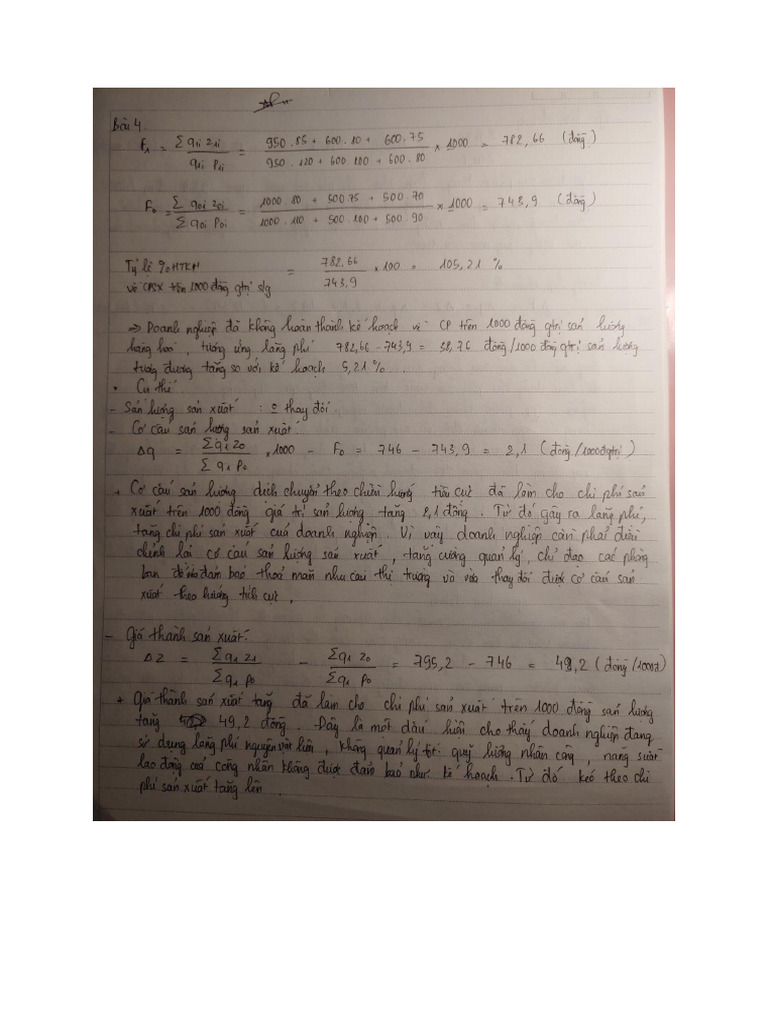 Bài 4.
F₁ = Σ q₁ᵢ z₁ᵢ / q₁ᵢ p₁ᵢ = (950.85 + 600.80 + 600.75) / (950.120 + 600.100 + 600.80) × 1000 = 782,66 (đồng)
F₀ = Σ q₀ᵢ z₀ᵢ / Σ q₀ᵢ p₀ᵢ = (1000.80 + 500.75 + 500.70) / (1000.110 + 500.100 + 500.90) × 1000 = 743,9 (đồng)
Tỷ lệ % HTKH
về CPSX trên 1000 đồng gtrị slg = 782,66 / 743,9 × 100 = 105,21 %
=> Doanh nghiệp đã không hoàn thành kế hoạch về CP trên 1000 đồng gtrị sản lượng
hàng hoá, tương ứng lãng phí 782,66 – 743,9 = 38,76 đồng/1000 đồng gtrị sản lượng
tương đương tăng so với kế hoạch 5,21 %.
• Cụ thể
- Sản lượng sản xuất : 0 thay đổi
- Cơ cấu sản lượng sản xuất:
Δq = Σq₁z₀ / Σq₁p₀ × 1000 – F₀ = 746 – 743,9 = 2,1 (đồng/1000đgtrị)
+ Cơ cấu sản lượng dịch chuyển theo chiều hướng tiêu cực đã làm cho chi phí sản
xuất trên 1000 đồng giá trị sản lượng tăng 2,1 đồng. Từ đó gây ra lãng phí,
tăng chi phí sản xuất của doanh nghiệp. Vì vậy doanh nghiệp cần phải điều
chỉnh lại cơ cấu sản lượng sản xuất, tăng cường quản lý, chỉ đạo các phòng
ban để đảm bảo thoả mãn nhu cầu thị trường và thay đổi được cơ cấu sản
xuất theo hướng tích cực.
- Giá thành sản xuất:
Δz = Σq₁z₁ / Σq₁p₀ – Σq₁z₀ / Σq₁p₀ = 795,2 – 746 = 49,2 (đồng/1000đ)
+ Giá thành sản xuất tăng đã làm cho chi phí sản xuất trên 1000 đồng sản lượng
tăng 49,2 đồng. Đây là một dấu hiệu cho thấy doanh nghiệp đang
sử dụng lãng phí nguyên vật liệu, không quản lý tốt quỹ lương nhân công, năng suất
lao động của công nhân không được đảm bảo như kế hoạch. Từ đó kéo theo chi
phí sản xuất tăng lên.